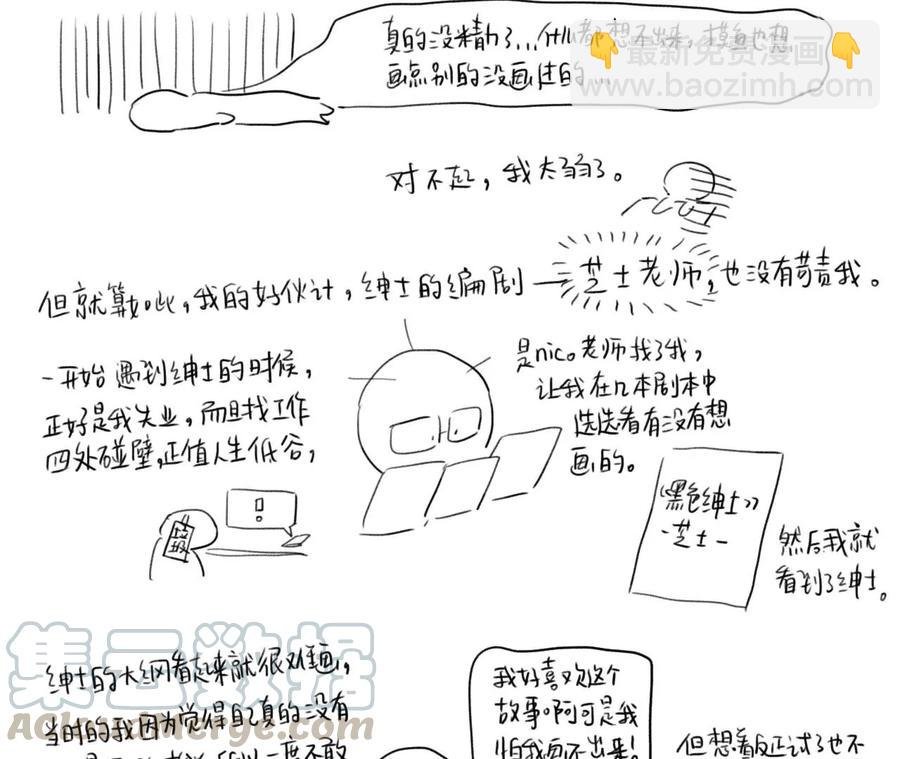 真的没精力了…什么都想不出来，
画点别的没画过的…
最新免费漫画
baozimh.com
对不起，我太弱了。
但就算如此，我的好伙计，绅士的编剧—芝士老师，也没有苛责我。
一开始遇到绅士的时候，
正好是我失业，而且找工作
四处碰壁，正值人生低谷，
是nico老师找了我，
让我在几本剧本中
选选看有没有想
画的。
垃圾
!
《黑色绅士》
-芝士-
然后我就
看到了绅士。
集云数据
绅士的大纲看起来就很难画，
当时的我因为觉得自己真的没有
一度不敢
我好喜欢这个
故事啊可是我
怕我画不出来!
但想着反正试了也不